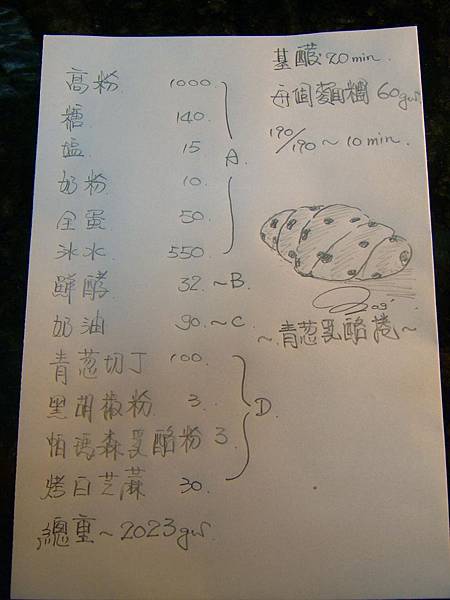 高粉 1000
糖 140
塩 15
奶粉 10
全蛋 50
冰水 550
A
鮮酵 32 ~B
奶油 90 ~C
青葱切丁 100
黑胡椒粉 3
帕瑪森乳酪粉 3
烤白芝蔴 30
D
總重~2023gw
基醱:20min
每個麵糰60gw
190/190~10min
09'
~青葱乳酪捲~